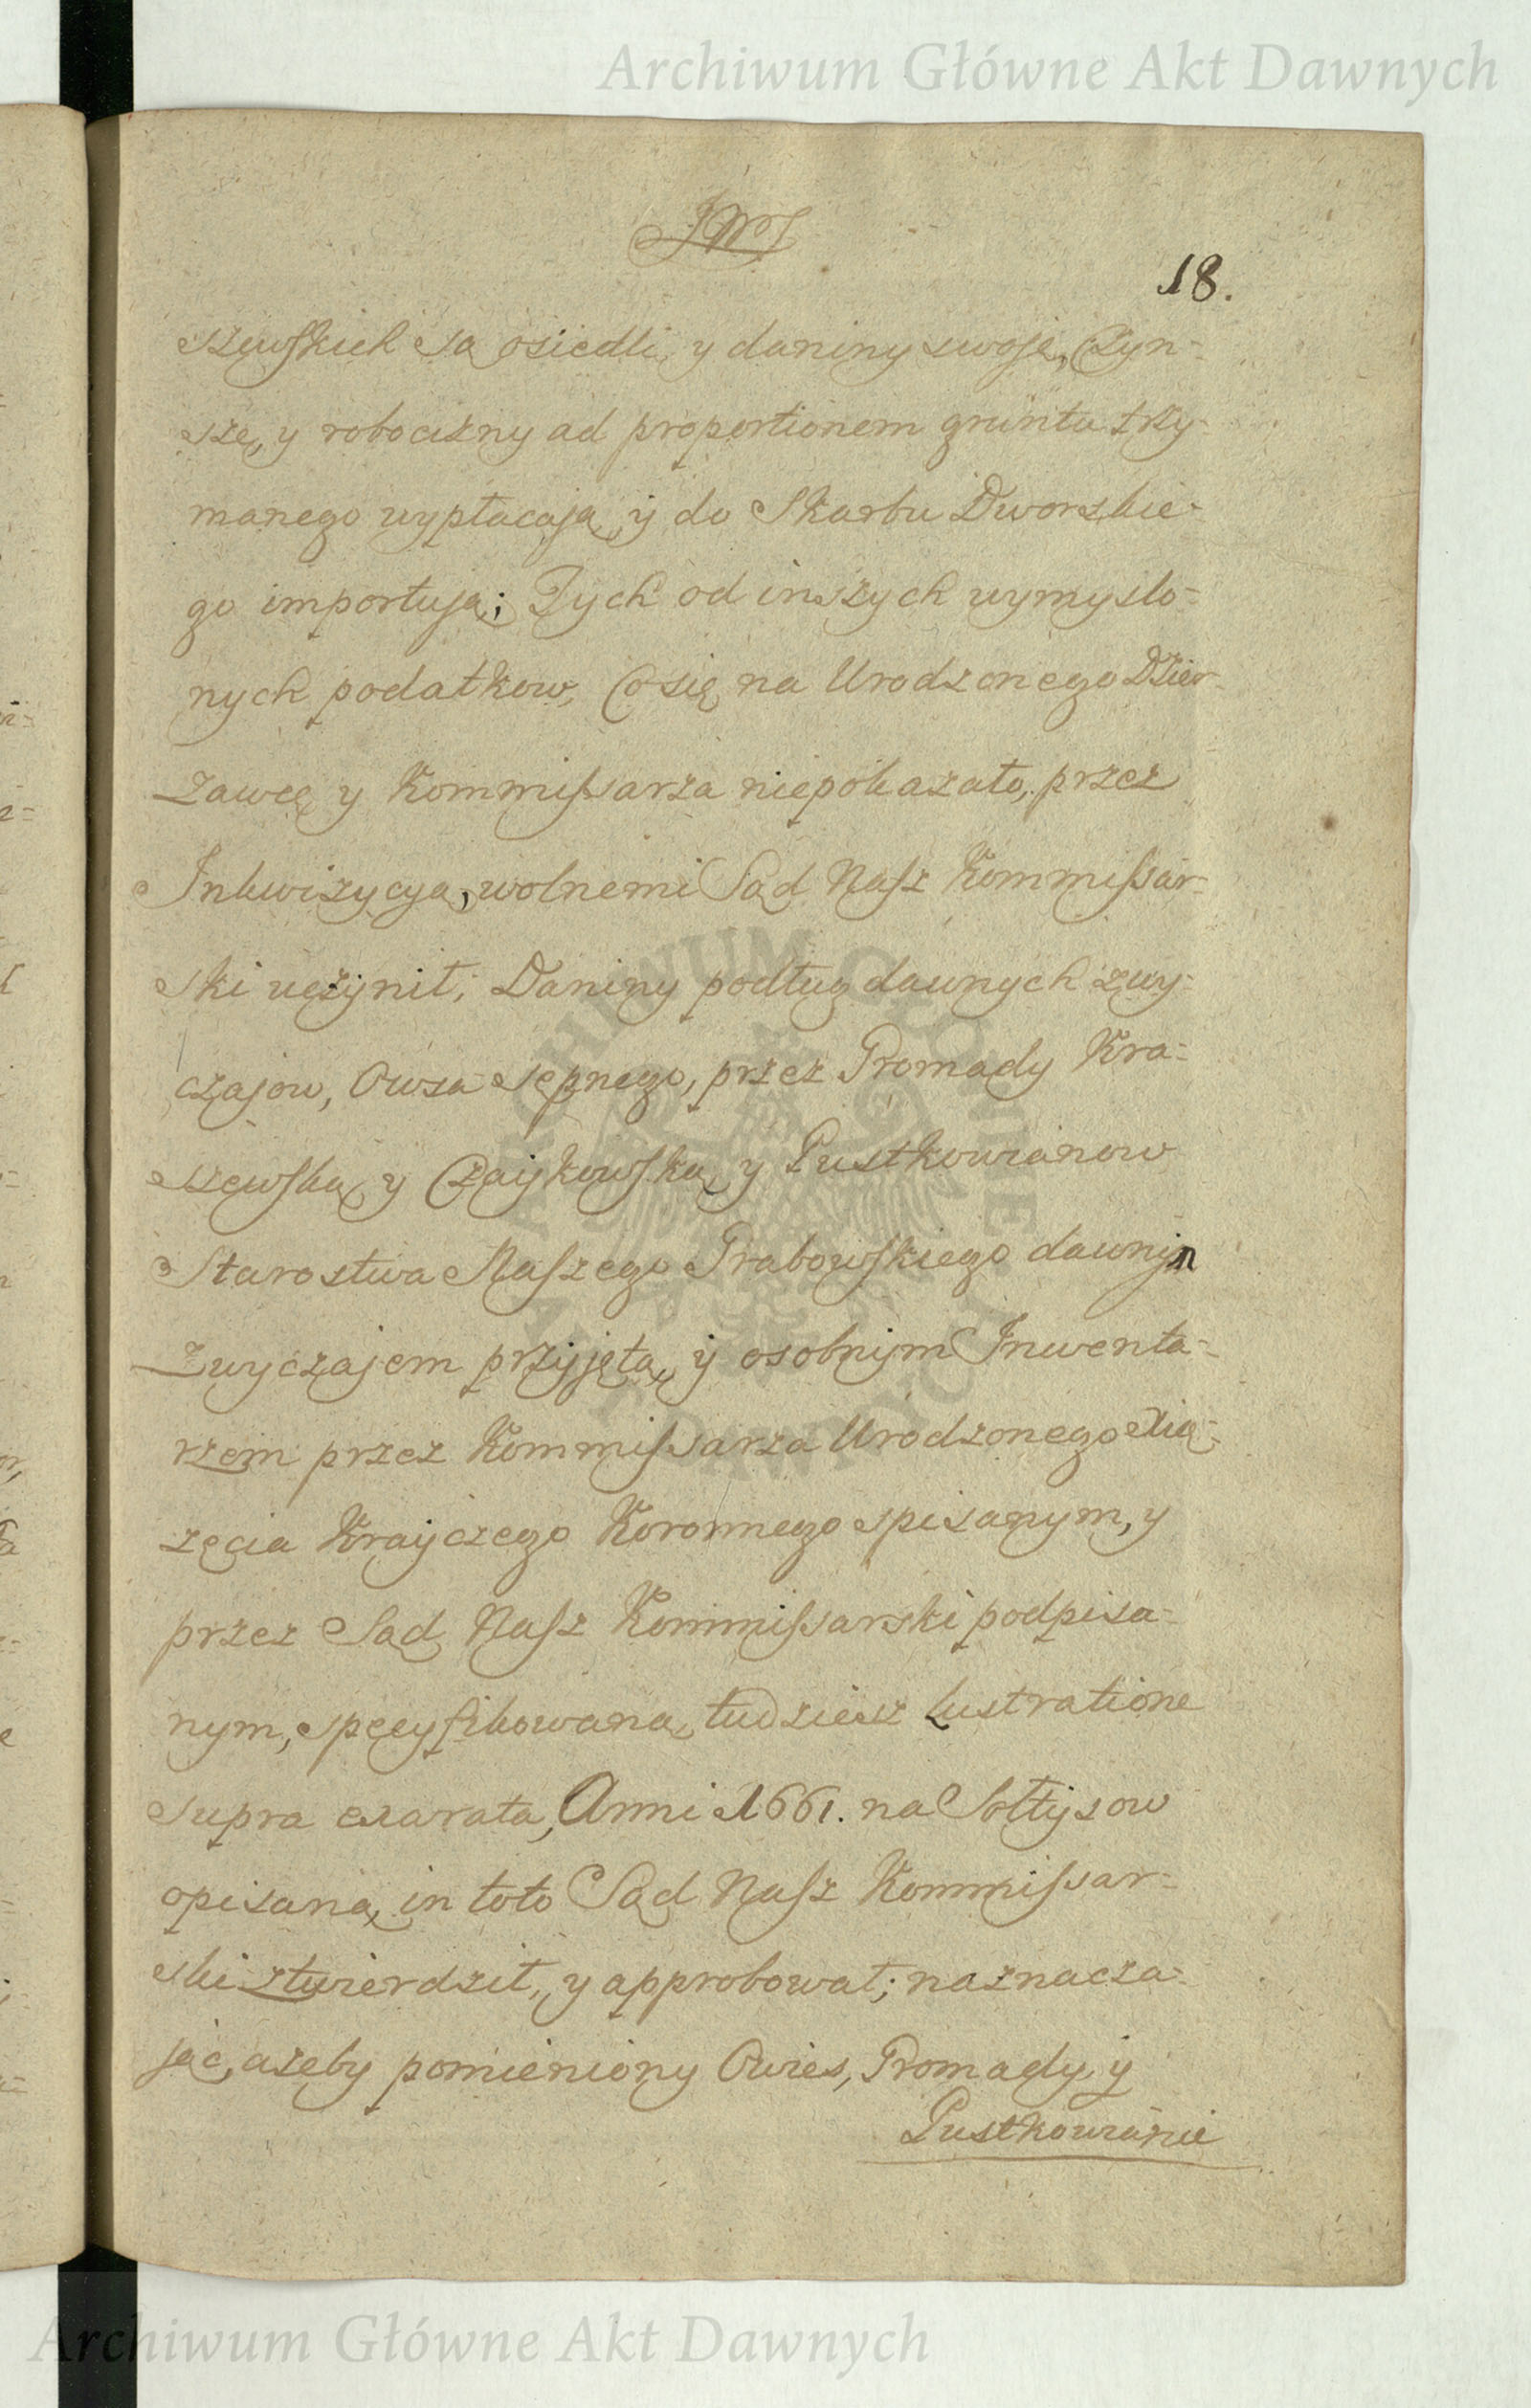 Archiwum Główne Akt Dawnych
18.
szewskich są osiedli, y daniny swoje, Czyn-
sze, y robocizny ad proportionem gruntu trzy-
manego wypłacają, y do Skarbu Dworskie-
go importują; Tych od inszych wymyślo-
nych podatkow, Co się na Urodzonego Dzier-
zawcę y Kommissarza niepokazało, przez
Inkwizycyą, wolnemi Sąd Nasz Kommissar-
ski uczynił; Daniny podług dawnych zwy-
czajow, Owsa Sepnego, przez Gromady Kra-
szewską y Czaykowską y Pustkowianow
Starostwa Naszego Grabowskiego dawnym
Zwyczajem przyjętą, y osobnym Inwenta-
rzem przez Kommissarza Urodzonego Xią-
zęcia Krayczego Koronnego spisanym, y
przez Sąd Nasz Kommissarski podpisa-
nym, specyfikowaną, tudziesz Lustratione
supra exarata, Anni 1661. na Sołtysow
opisaną, in toto Sąd Nasz Kommissar-
ski ztwierdził, y approbował; naznacza-
jąc, azeby pomieniony Owies, Gromady y
Pustkowianie
ARCHIWUM GŁÓWNE AKT DAWNYCH
Archiwum Główne Akt Dawnych